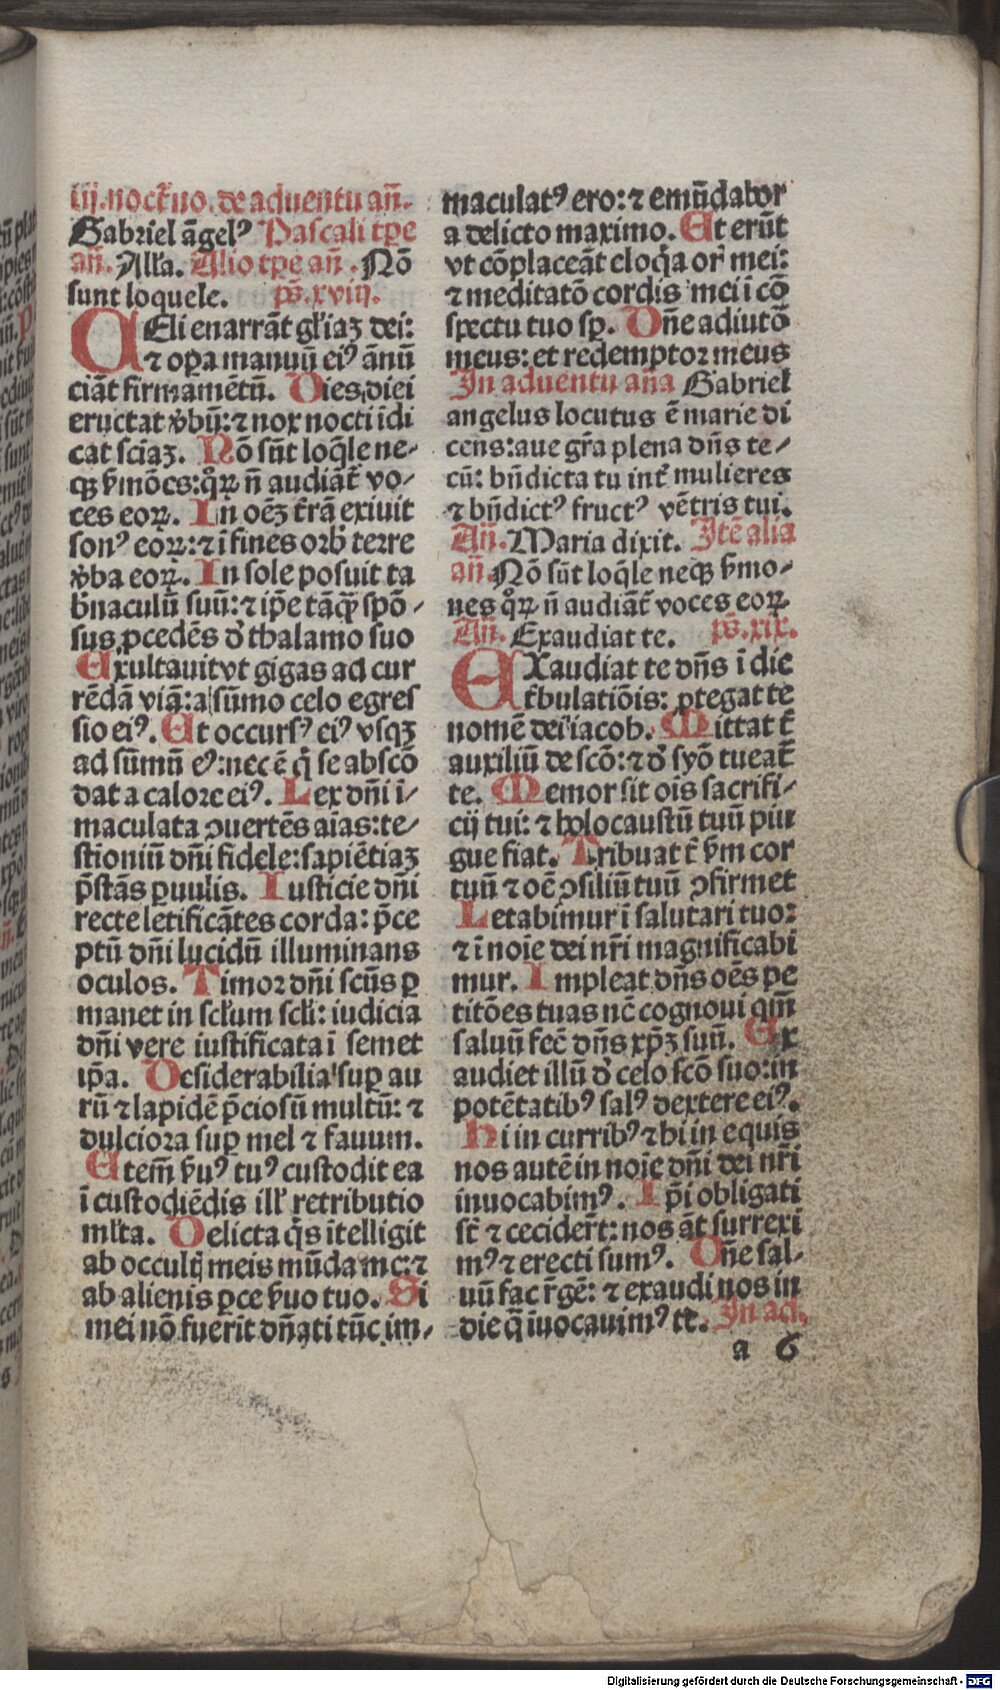 iij.noct̃no.de aduentu añ.
Gabriel ãgelꝰ Pascali tꝑe
añ. All'a. Alio tꝑe añ. Nõ
sunt loquele. pš.xviij.
CEli enarrãt gl'iaꝫ dei:
⁊ oꝑa manuũ eiꝰ ãnũ
ciãt firmamẽtũ. Dies diei
eructat v̾bũ:⁊ nox nocti ĩdi
cat sciãꝫ. Nõ sũt loq̃le ne-
qꝫ ẜmões:qͦꝝ ñ audiãt̃ vo-
ces eoꝝ. In oẽꝫ t̃rã exiuit
sonꝰ eoꝝ:⁊ ĩ fines orb̾ terre
v̾ba eoꝝ. In sole posuit ta
b̾naculũ suũ:⁊ ip̃e tãqꝫ spõ-
sus ꝓcedẽs d̾ thalamo suo
Exultauit vt gigas ad cur
rẽdã viã:a sũmo celo egres
sio eiꝰ. Et occursꝰ eiꝰ vsqꝫ
ad sũmũ eꝰ:nec ẽ q̃ se abscõ
dat a calore eiꝰ. Lex dñi ĩ-
maculata ꝯuertẽs aĩas:te-
stioniũ dñi fidele:sapiẽtiaꝫ
p̃stãs ꝑuulis. Iusticie dñi
recte letificãtes corda: p̃ce
ptũ dñi lucidũ illuminans
oculos. Timor dñi scũs ꝑ
manet in scl'um scl'i: iudicia
dñi vere iustificata ĩ semet
ip̃a. Desiderabilia suꝑ au
rũ ⁊ lapidẽ p̃ciosũ multũ: ⁊
dulciora suꝑ mel ⁊ fauum.
Etem̃ ẜuꝰ tuꝰ custodit ea
ĩ custodiẽdis ill' retributio
ml'ta. Delicta q̃s ĩtelligit
ab occultĳ meis mũda me:⁊
ab alienis ꝑce ẜuo tuo. Si
mei nõ fuerĩt dñati tũc im-
maculatꝰ ero: ⁊ emũdabor
a delicto maximo. Et erũt
vt cõplaceãt eloq̃a or̃ mei:
⁊ meditatõ cordis mei ĩ cõ
spectu tuo sꝑ. Dñe adiutõ
meus: et redemptor meus
In aduentu aña Gabriel
angelus locutus ẽ marie di
cens:aue gr̃a plena dñs te-
cũ: bñdicta tu int̃ mulieres
⁊ bñdictꝰ fructꝰ vẽtris tui.
Añ. Maria dixit. Itẽ alia
añ. Nõ sũt loq̃le neqꝫ ẜmo-
nes qͦꝝ ñ audiãt̃ voces eoꝝ
Añ. Exaudiat te. pš.xix.
EXaudiat te dñs ĩ die
t̾bulatiõis: ꝓtegat te
nomẽ dei iacob. Mittat t̃
auxiliũ de scõ:⁊ d̾ syõ tueat̃
te. Memor sit oĩs sacrifi-
cĳ tui: ⁊ holocaustũ tuũ piu
gue fiat. Tribuat t̃ ẜm cor
tuũ ⁊ oẽ ꝯsiliũ tuũ ꝯfirmet
Letabimur ĩ salutari tuo:
⁊ ĩ noĩe dei nr̃i magnificabi
mur. Impleat dñs oẽs pe
titões tuas nũc cognoui qm̃
saluũ fec̃ dñs xp̃ꝫ suũ. Ex
audiet illũ d̾ celo scõ suo:in
potẽtatibꝰ salꝰ dextere eiꝰ.
Hi in curribꝰ ⁊ hi in equis
nos autẽ in noĩe dñi dei nr̃i
inuocabimꝰ. Ip̃i obligati
st̃ ⁊ cecider̃t: nos ãt surrexi
mꝰ ⁊ erecti sumꝰ. Dñe sal-
uũ fac r̃gẽ: ⁊ exaudi nos in
die q̃ ĩuocauimꝰ te. In ad,
a 6
Digitalisierung gefördert durch die Deutsche Forschungsgemeinschaft - DFG